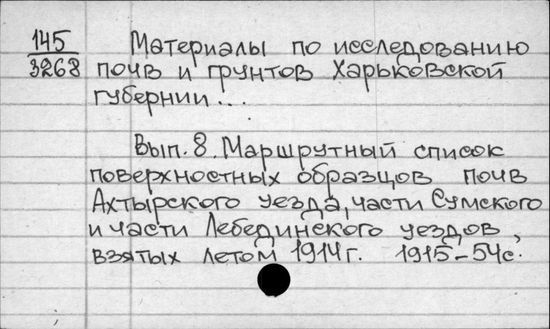 145 Материалы по исследованию
3268 почв и грунтов Харьковской
губернии...
Вып. 8. Маршрутный список
поверхностных образцов почв
Ахтырского уезда, части Сумского
и части Лебединского уездов,
взятых летом 1914г. 1915-54с.